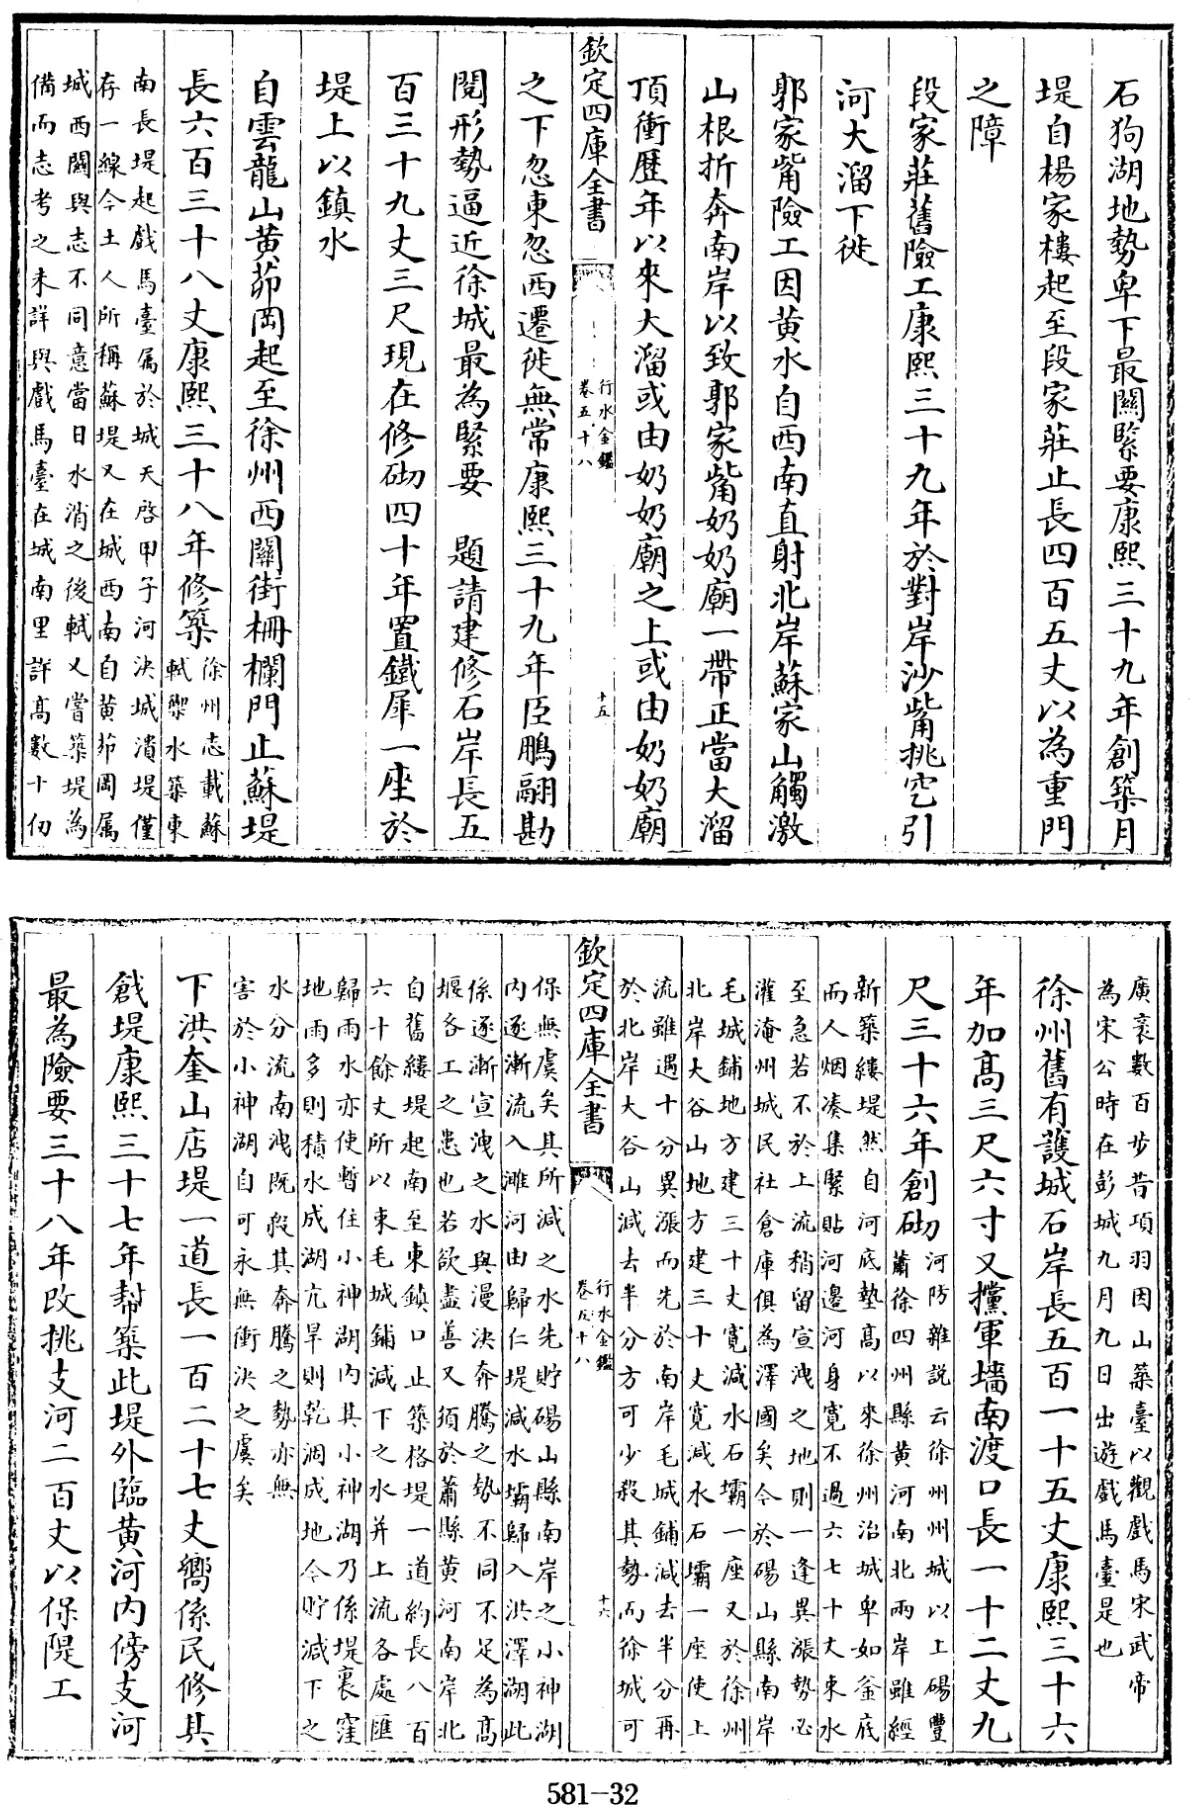 石狗湖地勢卑下最關緊要康熙三十九年創築月
堤自楊家樓起至段家莊止長四百五丈以為重門
之障
段家莊舊險工康熙三十九年於對岸沙嘴挑空引
河大溜下徙
郭家嘴險工因黄水自西南直射北岸蘇家山觸激
山根折奔南岸以致郭家嘴奶奶廟一帶正當大溜
頂衝歴年以來大溜或由奶奶廟之上或由奶奶廟
欽定四庫全書
行水金鑑
卷五十八
十五
之下忽東忽西遷徙無常康熙三十九年臣鵬翮勘
閲形勢逼近徐城最為緊要 題請建修石岸長五
百三十九丈三尺現在修砌四十年置鐵犀一座於
堤上以鎮水
自雲龍山黄茆岡起至徐州西關街柵欄門止蘇堤
長六百三十八丈康熙三十八年修築
徐州志載蘇
軾禦水築東
南長堤起戲馬臺属於城天啓甲子河決城潰堤僅
存一線今土人所稱蘇堤又在城西南自黄茆岡属
城西關與志不同意當日水消之後軾又嘗築堤為
備而志考之未詳與戲馬臺在城南里許高數十仞
廣袤數百步昔項羽因山築臺以觀戲馬宋武帝
為宋公時在彭城九月九日出遊戲馬臺是也
徐州舊有護城石岸長五百一十五丈康熙三十六
年加髙三尺六寸又攩軍墻南渡口長一十二丈九
尺三十六年創砌
河防雜説云徐州州城以上碭豐
蕭徐四州縣黄河南北兩岸雖經
新築縷堤然自河底墊高以來徐州治城卑如釜底
而人烟凑集緊貼河邊河身寬不過六七十丈束水
至急若不於上流稍留宣洩之地則一逢異漲勢必
灌淹州城民社倉庫俱為澤國矣今於碭山縣南岸
毛城鋪地方建三十丈寛減水石壩一座又於徐州
北岸大谷山地方建三十丈寛減水石壩一座使上
流雖遇十分異漲而先於南岸毛城鋪減去半分再
於北岸大谷山減去半分方可少殺其勢而徐城可
欽定四庫全書
行水金鑑
卷五十八
十六
保無虞矣其所減之水先貯碭山縣南岸之小神湖
内逐漸流入濉河由歸仁堤減水壩歸入洪澤湖此
係逐漸宣洩之水與漫決奔騰之勢不同不足為髙
堰各工之患也若欲盡善又須於蕭縣黄河南岸北
自舊縷堤起南至東鎮口止築格堤一道約長八百
六十餘丈所以束毛城鋪減下之水并上流各處匯
歸雨水亦使暫住小神湖内其小神湖乃係堤裏窪
地雨多則積水成湖亢旱則乾涸成地今貯減下之
水分流南洩既殺其奔騰之勢亦無
害於小神湖自可永無衝決之虞矣
下洪奎山店堤一道長一百二十七丈嚮係民修其
創堤康熙三十七年幇築此堤外臨黄河内傍支河
最為險要三十八年改挑支河二百丈以保隄工
581-32